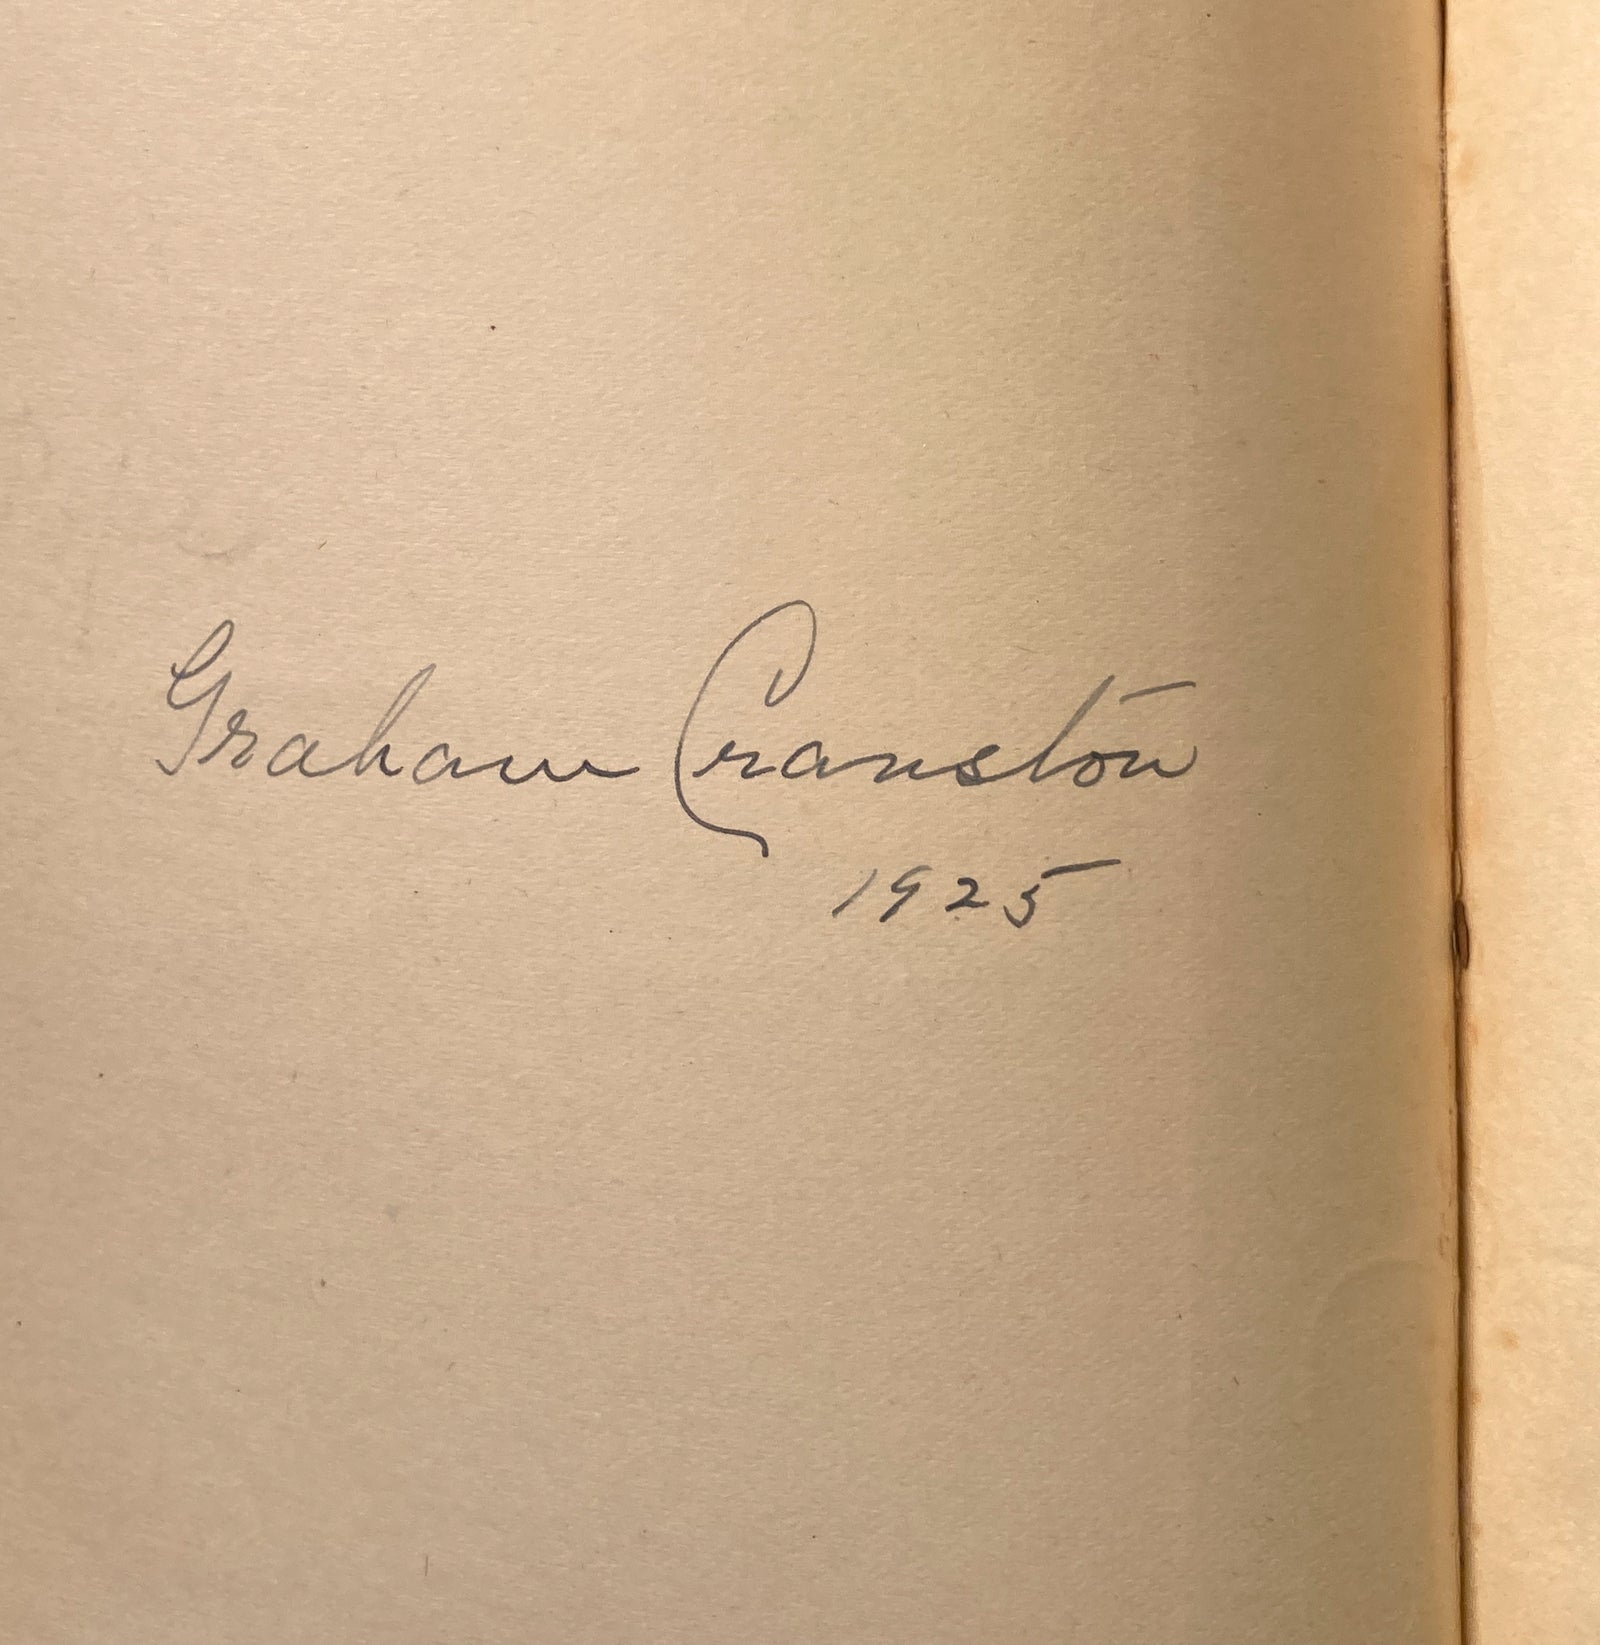 Graham Cranston
1925